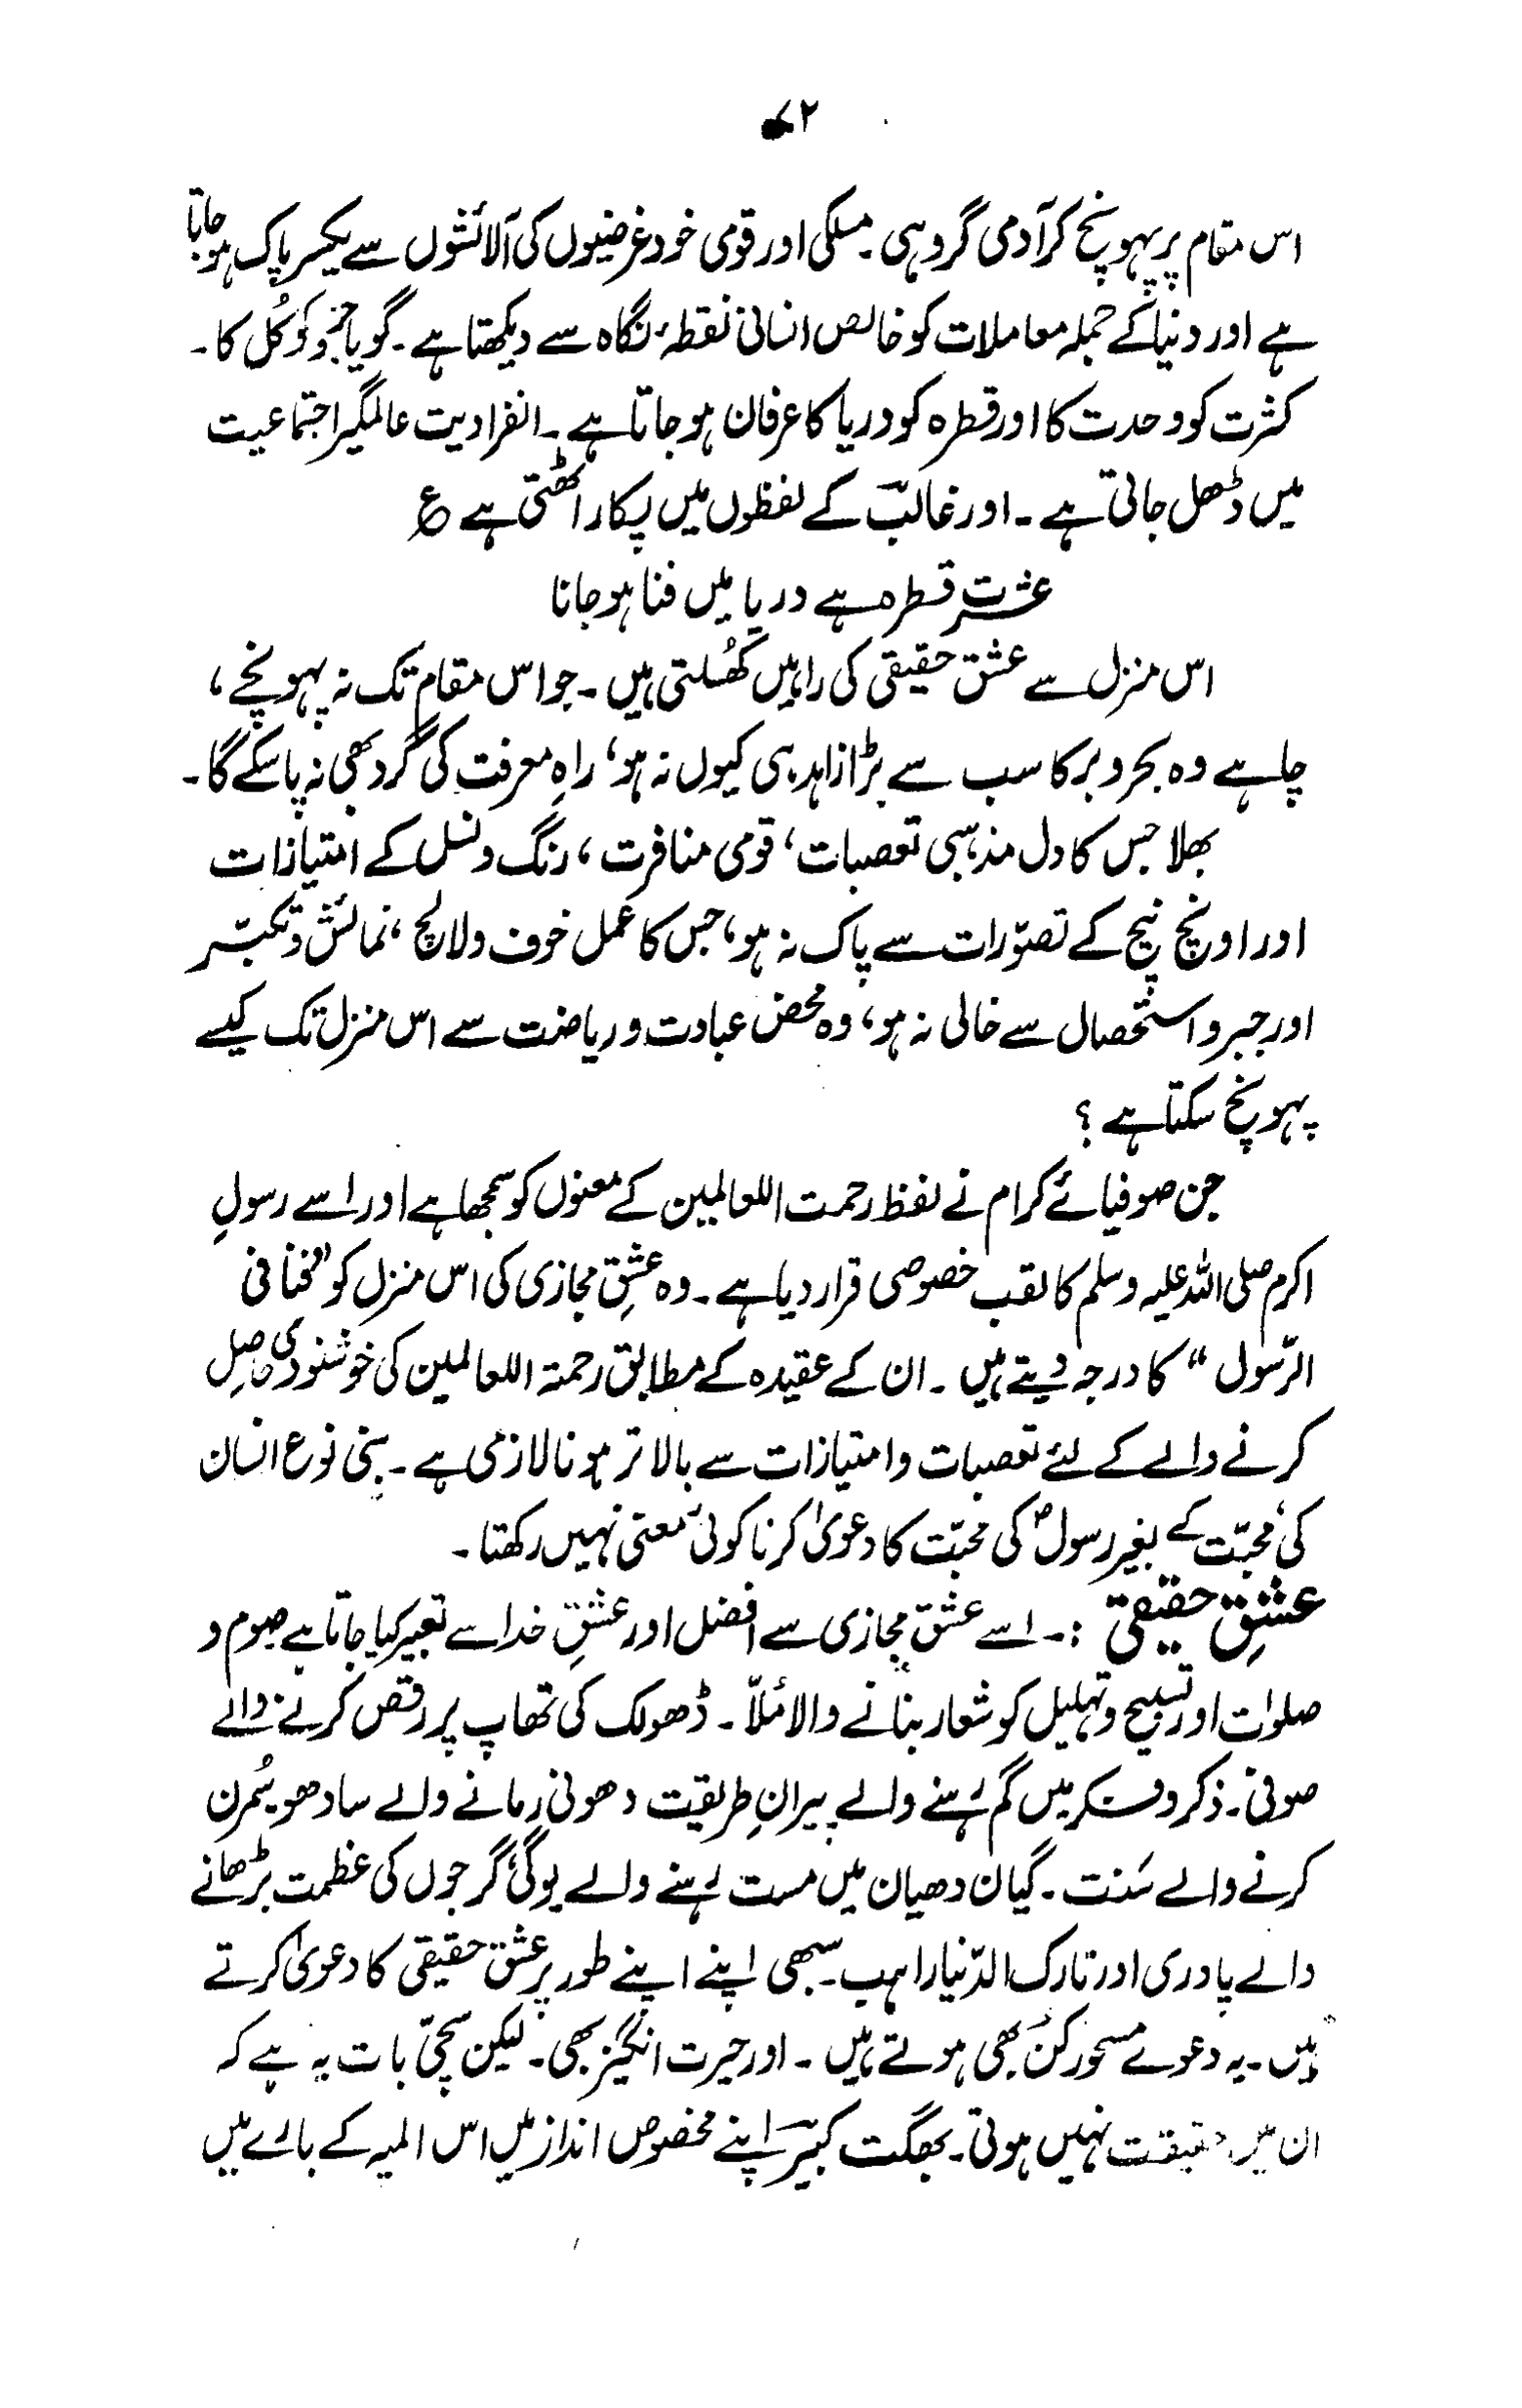 ۷۲
اس مقام پر پہونچ کر آدمی گروہی ۔ مسلکی اور قومی خود غرضیوں کی آلائشوں سے یکسر پاک ہو جاتا
ہے اور دنیا کے جملہ معاملات کو خالص انسانی نقطۂ نگاہ سے دیکھتا ہے ۔ گویا جزو کو کُل کا ۔
کثرت کو وحدت کا اور قطرہ کو دریا کا عرفان ہو جاتا ہے ۔ انفرادیت عالمگیر اجتماعیت
میں ڈھل جاتی ہے ۔ اور غالبؔ کے لفظوں میں پکار اٹھتی ہے ع
عشرتِ قطرہ ہے دریا میں فنا ہو جانا
اس منزل سے عشق حقیقی کی راہیں کھُلتی ہیں ۔ جو اس مقام تک نہ پہونچے ،
چاہے وہ بحر و بر کا سب سے بڑا زاہد ہی کیوں نہ ہو، راہِ معرفت کی گرد بھی نہ پا سکے گا ۔
بھلا جس کا دل مذہبی تعصبات، قومی منافرت ، رنگ و نسل کے امتیازات
اور اونچ نیچ کے تصوّرات سے پاک نہ ہو، جس کا عمل خوف و لالچ ، نمائش و تکبّر
اور جبر و استحصال سے خالی نہ ہو، وہ محض عبادت و ریاضت سے اس منزل تک کیسے
پہونچ سکتا ہے ؟
جن صوفیائے کرام نے لفظ رحمت اللعالمین کے معنوں کو سمجھا ہے اور اسے رسولِ
اکرم صلی اللہ علیہ وسلم کا لقب خصوصی قرار دیا ہے ۔ وہ عشقِ مجازی کی اس منزل کو ”فنا فی
الرّسول“ کا درجہ دیتے ہیں ۔ ان کے عقیدہ کے مطابق رحمۃ اللعالمین کی خوشنودی حاصل
کرنے والے کے لئے تعصبات و امتیازات سے بالا تر ہونا لازمی ہے ۔ بنی نوع انسان
کی محبّت کے بغیر رسولؐ کی محبّت کا دعویٰ کرنا کوئی معنی نہیں رکھتا ۔
عشقِ حقیقی :۔ اسے عشق مجازی سے افضل اور عشقِ خدا سے تعبیر کیا جاتا ہے صوم و
صلوٰت اور تسبیح و تہلیل کو شعار بنانے والا مُلّا ۔ ڈھولک کی تھاپ پر رقص کرنے والے
صوفی ۔ ذکر و فکر میں گم رہنے والے پیرانِ طریقت دھونی رمانے والے سادھو سُمرن
کرنے والے سَنت ۔ گیان دھیان میں مست رہنے والے یوگی گرجوں کی عظمت بڑھانے
والے پادری اور تارک الدّنیا راہب ۔ سبھی اپنے اپنے طور پر عشق حقیقی کا دعویٰ کرتے
ہیں ۔ یہ دعوے مسحور کن بھی ہوتے ہیں ۔ اور حیرت انگیز بھی ۔ لیکن سچّی بات یہ ہے کہ
ان میں حقیقت نہیں ہوتی ۔ بھگت کبیرؔ اپنے مخصوص انداز میں اس المیہ کے بارے میں